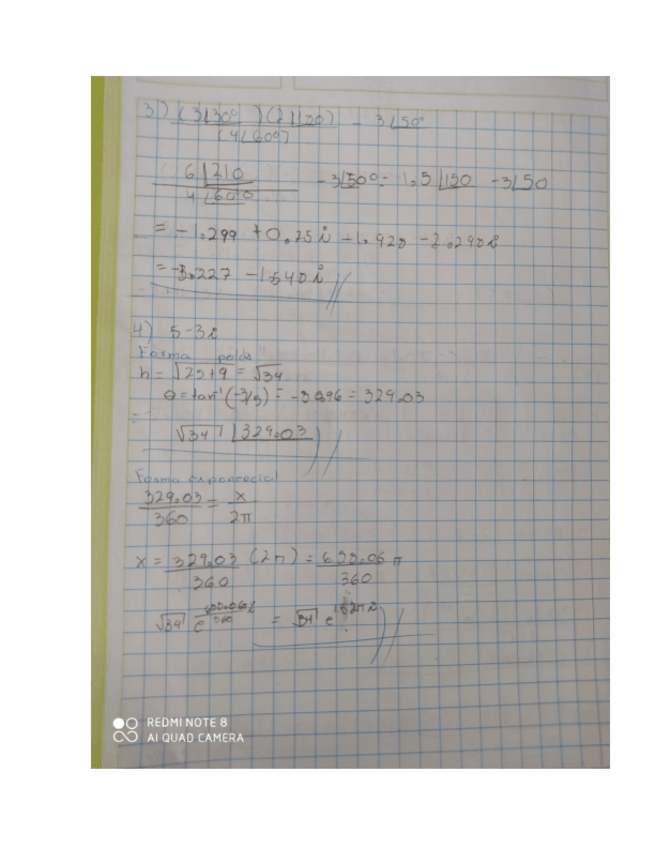 3) (3∠30°)(2∠120) - 3∠50°
(4∠60°)
6∠210 - 3∠50° = 1.5∠150 - 3∠50
4∠60°
= -1.299 + 0.75i - 1.928 - 2.298i
= -3.227 - 1.548i
4) 5-3i
Forma polar
h = √25+9 = √34
θ = tan⁻¹(-3/5) = = 329.03
√34 ∠329.03
Forma exponencial
329.03 = x
360 2π
x = 329.03 (2π) = 658.06 π
360 360
√34 e = √34 e
REDMI NOTE 8
AI QUAD CAMERA